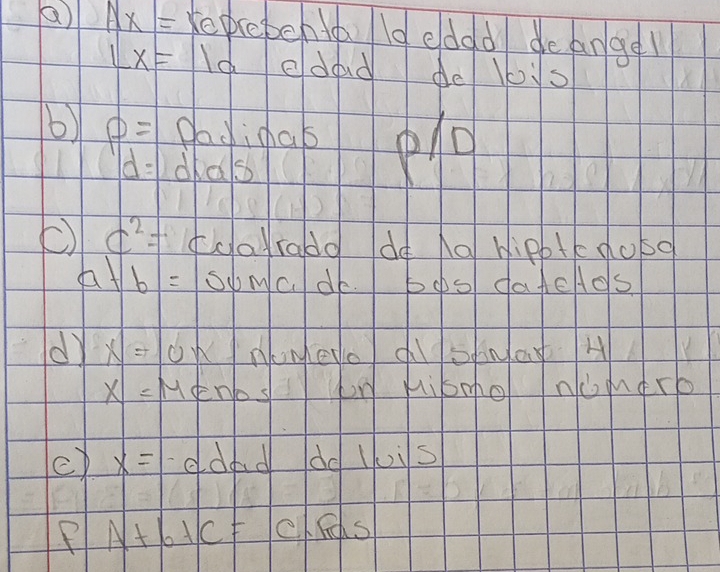 a) Ax = representa la edad de angel
Lx = la edad de luis
b) p = padinas p/D
d = dias
c) c² = cuatrado de la hipotenusa
a+b = suma de sos catetos
d) x = un numero al sumar 4
x = Menos un mismo número
e) x = edad de luis
f A+b+c = cifras